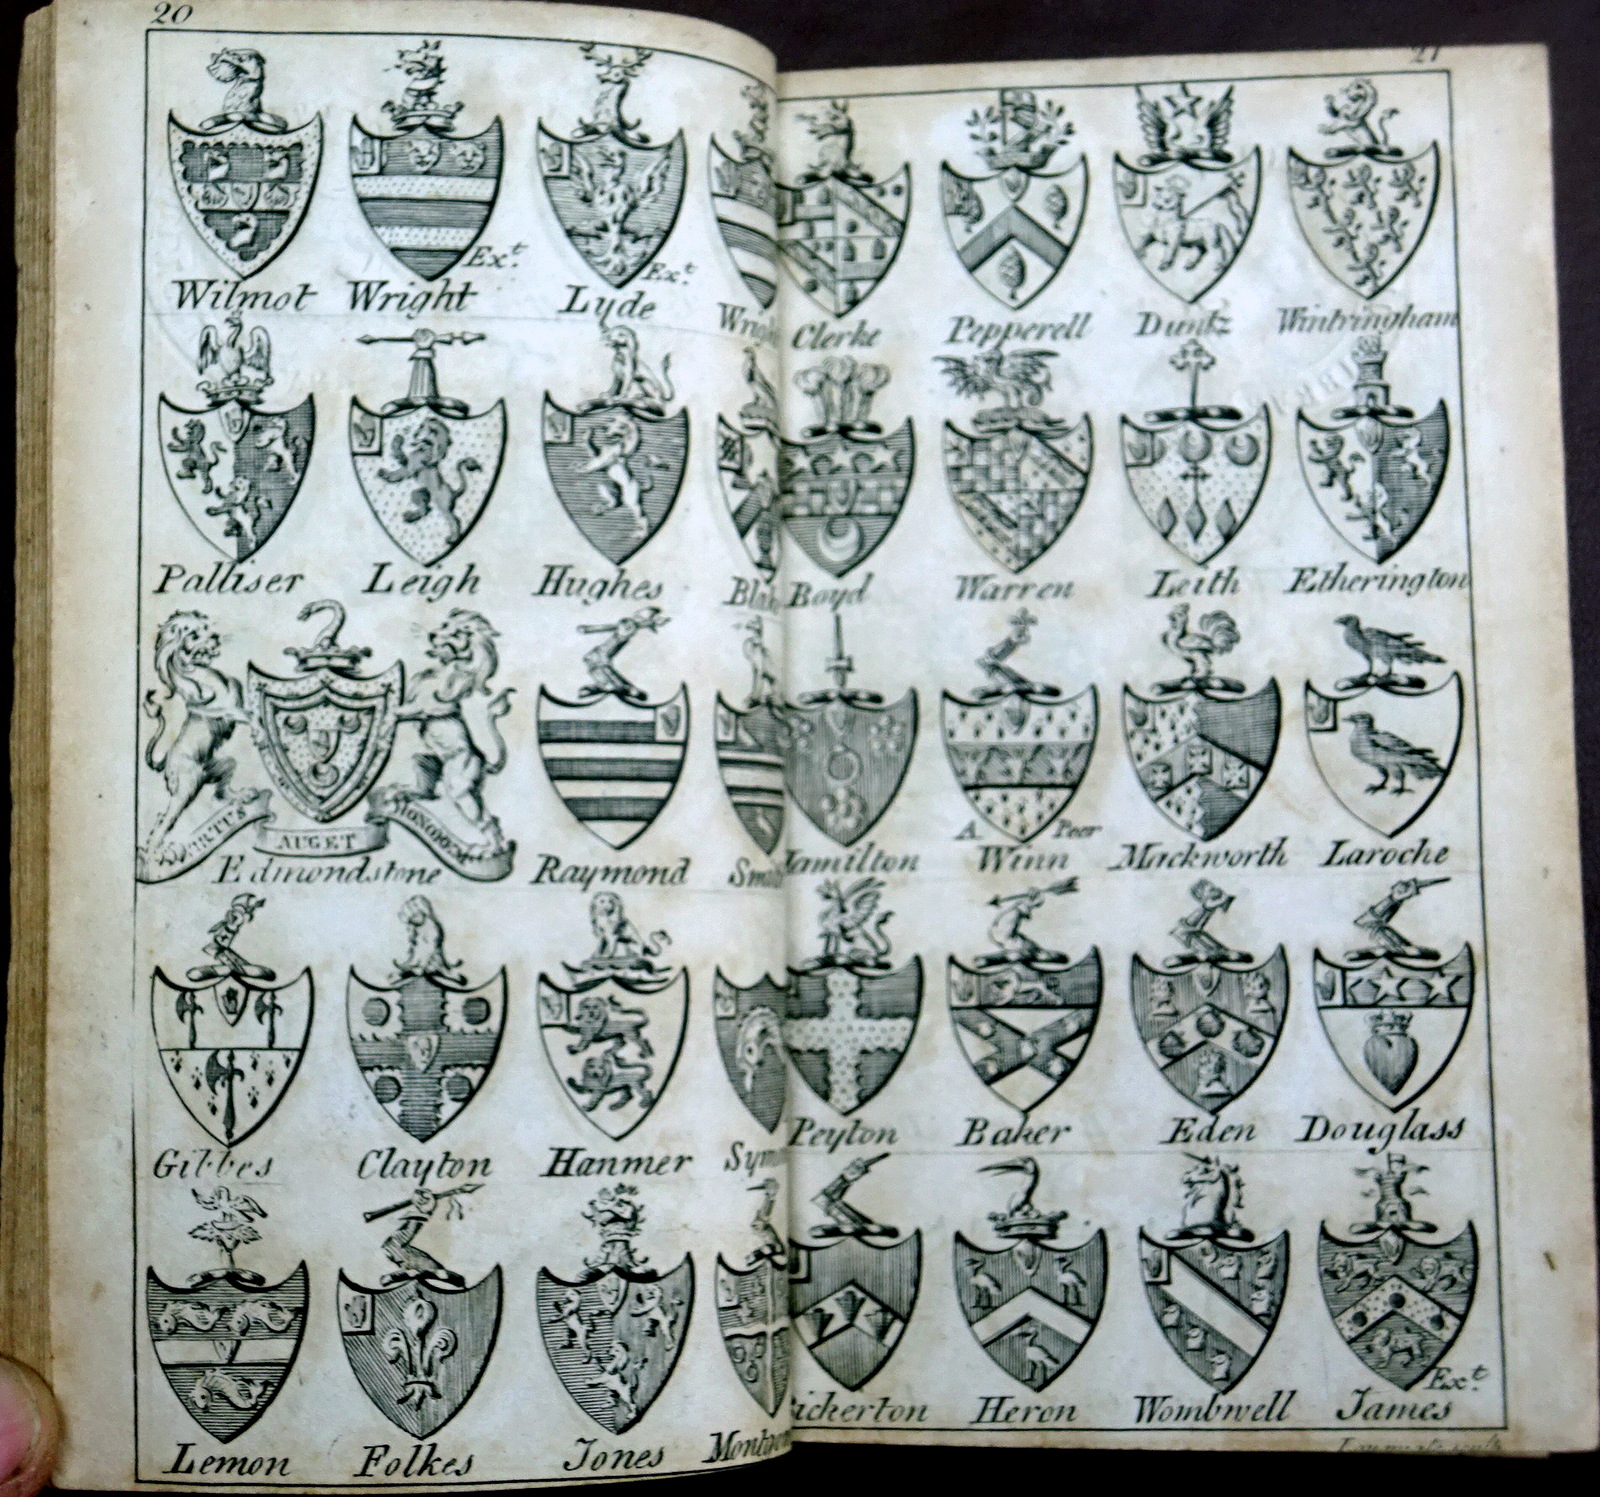 20
Ext.
Ext.
Wilmot Wright Lyde
Palliser Leigh Hughes
VIRTUS AUGET HONOREM
Edmondstone Raymond
Gibbes Clayton Hanmer
Lemon Folkes Jones
21
Clerke Pepperell Duntz Wintringham
Boyd Warren Leith Etherington
A Peer
Hamilton Winn Mackworth Laroche
Peyton Baker Eden Douglass
Ext.
Bickerton Heron Wombwell James